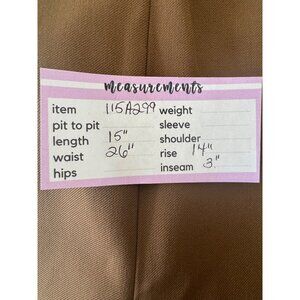 measurements
item 115A299 weight
pit to pit sleeve
length 15" shoulder
waist 26" rise 14"
hips inseam 3"